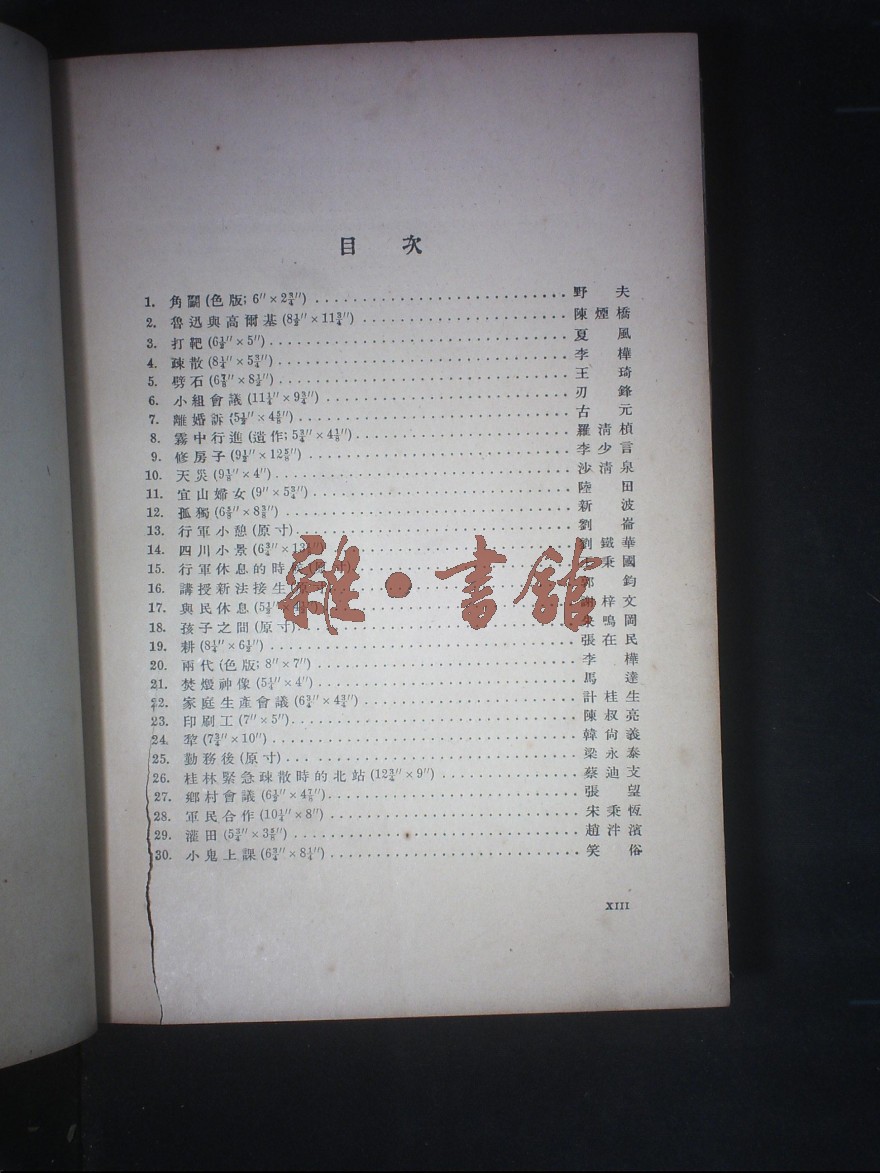 目 次
1. 角鬬(色版; 6″×2¾″) 野夫
2. 魯迅與高爾基(8½″×11¾″) 陳煙橋
3. 打靶(6½″×5″) 夏風
4. 疎散(8¼″×5¾″) 李樺
5. 劈石(6⅞″×8½″) 王琦
6. 小組會議(11¼″×9¾″) 刃鋒
7. 離婚訴(5½″×4⅝″) 古元
8. 霧中行進(遺作; 5¾″×4⅛″) 羅清楨
9. 修房子(9½″×12⅝″) 李少言
10. 天災(9⅛″×4″) 沙清泉
11. 宜山婦女(9″×5¾″) 陸田
12. 孤獨(6⅝″×8⅜″) 新波
13. 行軍小憩(原寸) 劉崙
14. 四川小景(6¾″×13 劉鐵華
15. 行軍休息的時 寸) 秉國
16. 講授新法接生( 郭鈞
17. 與民休息(5½″× 謝梓文
18. 孩子之間(原寸) 朱鳴岡
19. 耕(8¼″×6½″) 張在民
20. 兩代(色版; 8″×7″) 李樺
21. 焚燬神像(5¼″×4″) 馬達
22. 家庭生產會議(6¾″×4¾″) 計桂生
23. 印刷工(7″×5″) 陳叔亮
24. 犂(7¾″×10″) 韓尙義
25. 勤務後(原寸) 梁永泰
26. 桂林緊急疎散時的北站(12¾″×9″) 蔡迪支
27. 鄉村會議(6½″×4⅞″) 張望
28. 軍民合作(10¼″×8″) 宋秉恆
29. 灌田(5¾″×3⅝″) 趙泮濱
30. 小鬼上課(6¾″×8¼″) 笑俗
XIII
雜·書館